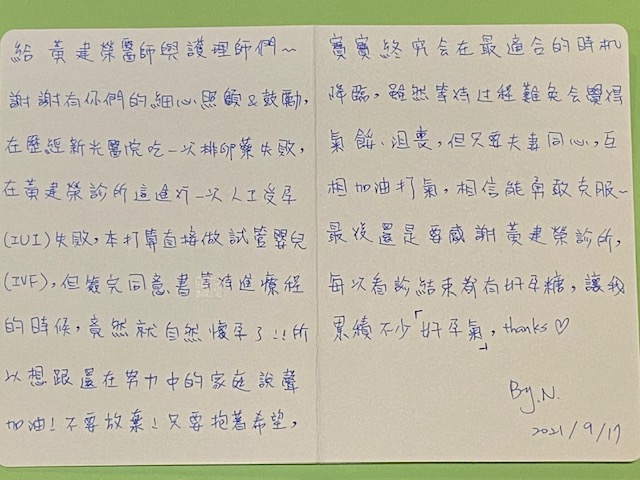 給 黃建榮醫師與護理師們～
謝謝有你們的細心照顧&鼓勵，
在歷經新光醫院吃一次排卵藥失敗，
在黃建榮診所這進行一次人工受孕
(IUI)失敗，本打算直接做試管嬰兒
(IVF)，但簽完同意書等待進療程
的時候，竟然就自然懷孕了!!所
以想跟還在努力中的家庭說聲
加油!不要放棄!只要抱著希望，
寶寶終究会在最適合的時机
降臨，雖然等待过程難免会覺得
氣餒、沮喪，但只要夫妻同心，互
相加油打氣，相信能勇敢克服～
最後還是要感謝黃建榮診所，
每次看診結束都有好孕糖，讓我
累績不少「好孕氣」，thanks♡
By.N.
2021/9/17